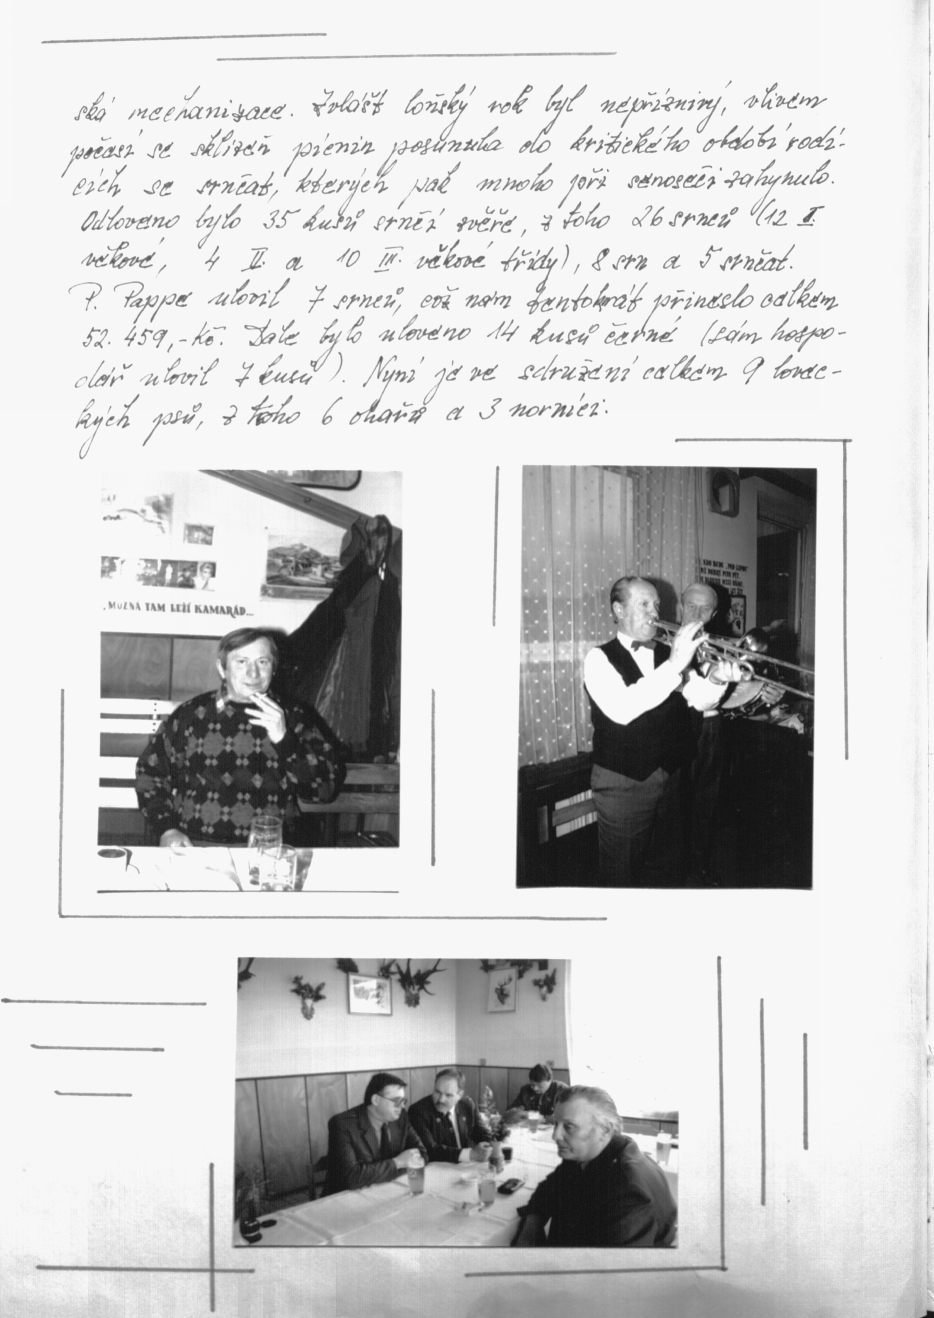 ská mechanizace. Zvlášť loňský rok byl nepříznivý, vlivem
počasí se sklizeň pícnin posunula do kritického období rodí-
cích se srnčat, kterých pak mnoho při senoseči zahynulo.
Odloveno bylo 35 kusů srnčí zvěře, z toho 26 srnců (12 I.
věkové, 4 II. a 10 III. věkové třídy), 8 srn a 5 srnčat.
P. Pappe ulovil 7 srnců, což nám tentokrát přineslo celkem
52.459,-Kč. Dále bylo uloveno 14 kusů černé (sám hospo-
dář ulovil 7 kusů). Nyní je ve sdružení celkem 9 lovec-
kých psů, z toho 6 ohařů a 3 norníci.
"MOŽNÁ TAM LEŽÍ KAMARÁD...